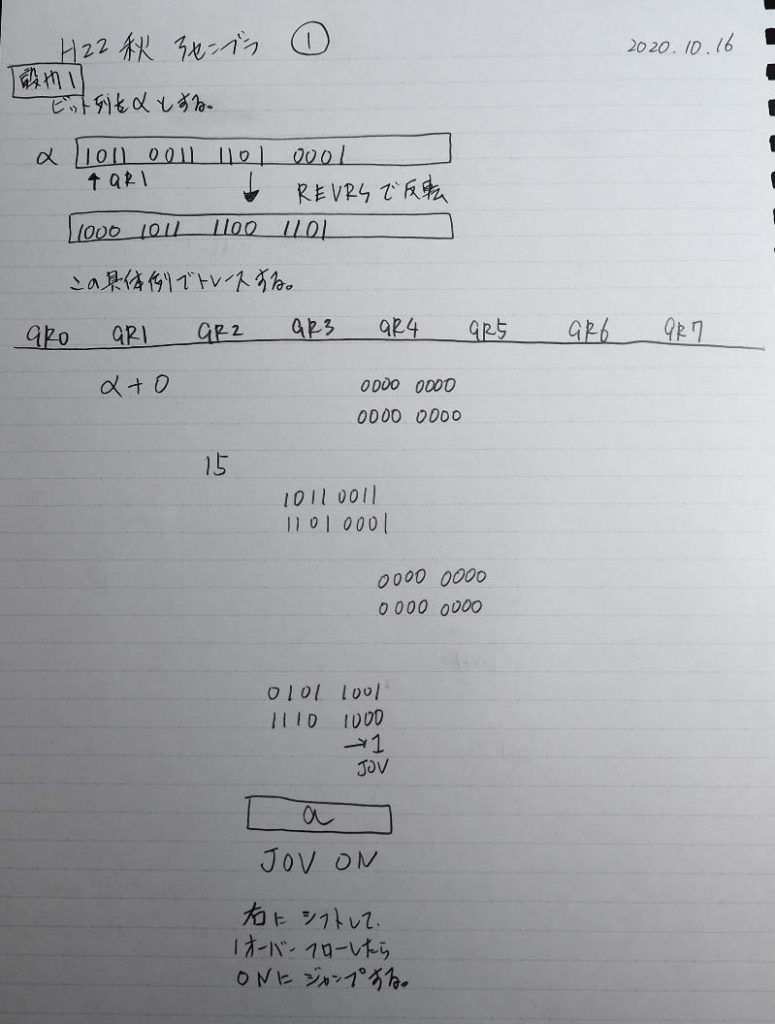 H22 秋 アセンブラ ①
2020.10.16
設問1
ビット列をαとする。
α 1011 0011 1101 0001
↑GR1 ↓ REVRSで反転
1000 1011 1100 1101
この具体例でトレースする。
GR0 GR1 GR2 GR3 GR4 GR5 GR6 GR7
α+0 0000 0000
0000 0000
15
1011 0011
1101 0001
0000 0000
0000 0000
0101 1001
1110 1000
→1
JOV
a
JOV ON
右にシフトして、
1オーバーフローしたら
ONにジャンプする。